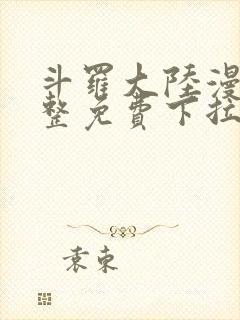 斗羅大陸漫
整免費下拉
袁東